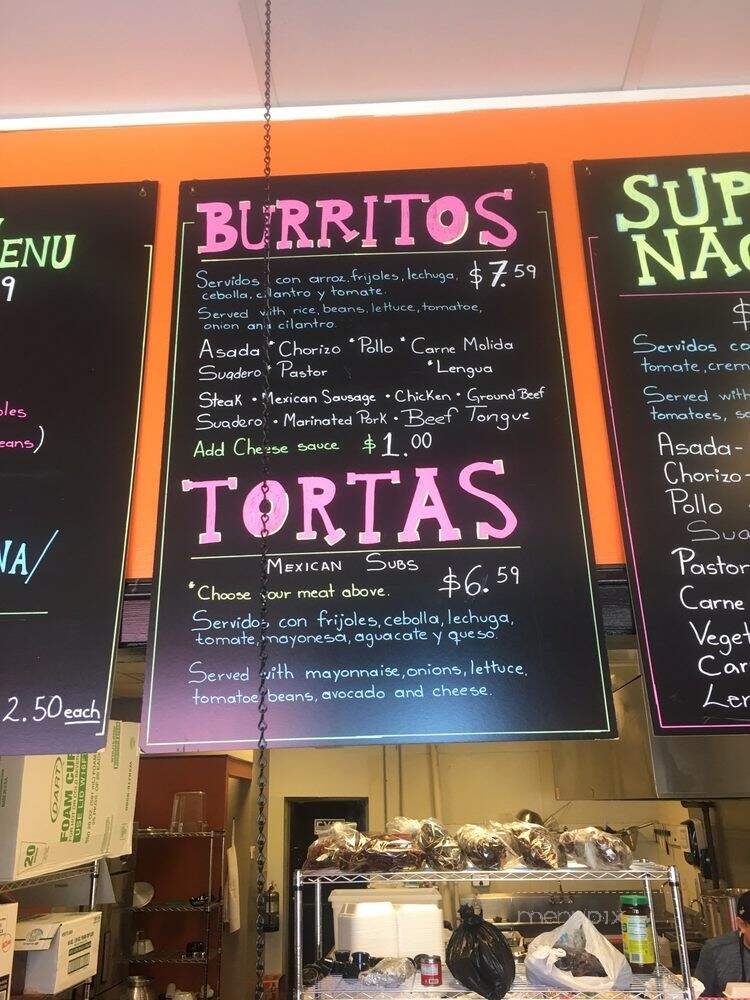 ENU
9
oles
eans)
NA/
2.50 each
BURRITOS
Servidos con arroz, frijoles, lechuga, $7.59
cebolla, cilantro y tomate.
Served with rice, beans, lettuce, tomatoe,
onion and cilantro.
Asada *Chorizo *Pollo *Carne Molida
Suadero *Pastor *Lengua
Steak • Mexican Sausage • Chicken • Ground Beef
Suadero • Marinated Pork • Beef Tongue
Add Cheese sauce $1.00
TORTAS
MEXICAN SUBS
*Choose your meat above. $6.59
Servidos con frijoles, cebolla, lechuga,
tomate, mayonesa, aguacate y queso.
Served with mayonnaise, onions, lettuce,
tomatoe, beans, avocado and cheese.
SUP
NAC
$
Servidos co
tomate, crem
Served with
tomatoes, s
Asada-
Chorizo-
Pollo
Sua
Pastor
Carne
Veget
Car
Ler
DART
FOAM CUP
20
menupix